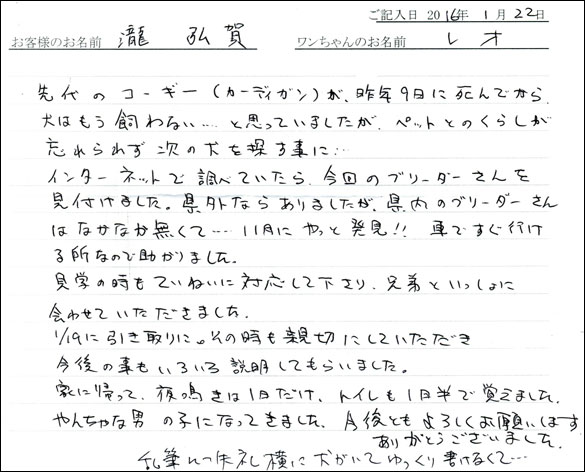 ご記入日 2016年 1月 22日
お客様のお名前 瀧 弘賀 ワンちゃんのお名前 レオ
先代のコーギー(カーディガン)が、昨年9日に死んでから
犬はもう飼わない…と思っていましたが、ペットとのくらしが
忘れられず次の犬を探す事に…
インターネットで調べていたら、今回のブリーダーさんを
見付けました。県外ならありましたが、県内のブリーダーさん
はなかなか無くて…11月にやっと発見!! 車ですぐ行け
る所なので助かりました。
見学の時もていねいに対応して下さり、兄弟といっしょに
会わせていただきました。
1/19に引き取りに。その時も親切にしていただき
今後の事もいろいろ説明してもらいました。
家に帰って、夜鳴きは1日だけ、トイレも1日半で覚えました。
やんちゃな男の子になってきました、今後ともよろしくお願いします
ありがとうございました。
乱筆にて失礼 横に犬がいてゆっくり書けなくて…